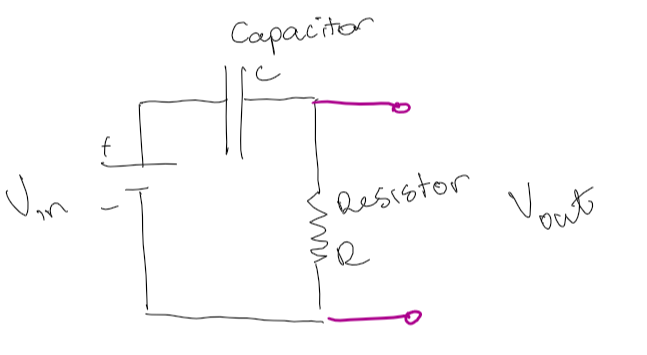 Capacitor
C
+
Vin
-
Resistor
R
Vout